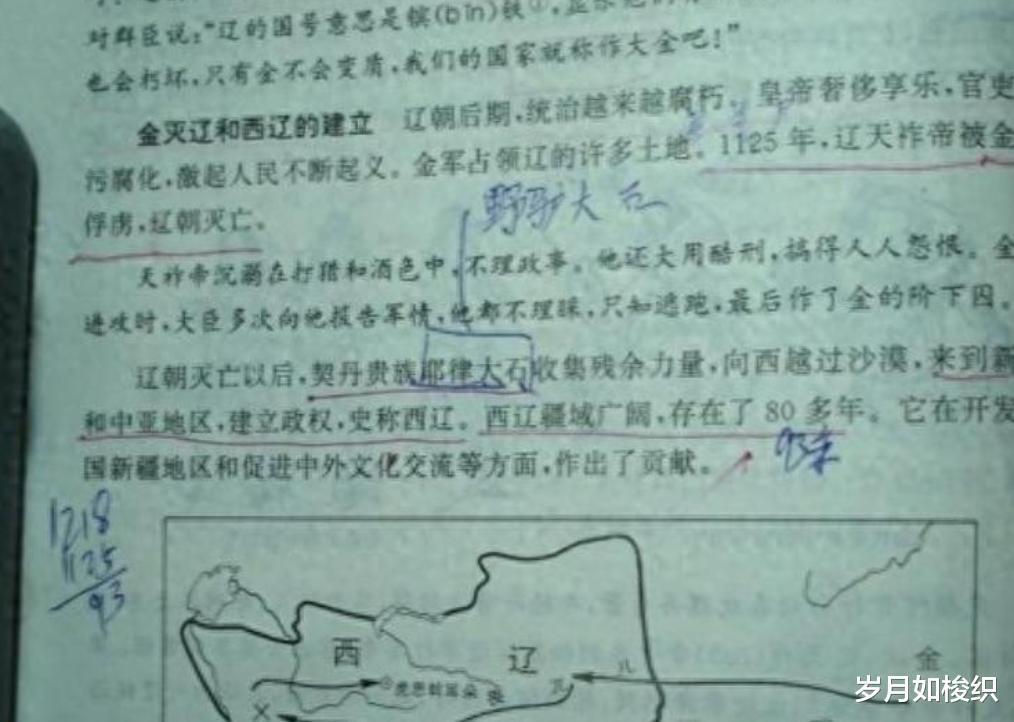 对群臣说:“辽的国号意思是镔(bīn)铁①,
也会朽坏,只有金不会变质,我们的国家就称作大金吧!”
金灭辽和西辽的建立 辽朝后期,统治越来越腐朽。皇帝奢侈享乐,官吏
污腐化,激起人民不断起义。金军占领辽的许多土地。1125年,辽天祚帝被金
俘虏,辽朝灭亡。
野驴大石
天祚帝沉溺在打猎和酒色中,不理政事。他还大用酷刑,搞得人人怨恨。金
进攻时,大臣多次向他报告军情,他都不理睬,只知逃跑,最后作了金的阶下囚。
辽朝灭亡以后,契丹贵族耶律大石收集残余力量,向西越过沙漠,来到新
和中亚地区,建立政权,史称西辽。西辽疆域广阔,存在了80多年。它在开发
国新疆地区和促进中外文化交流等方面,作出了贡献。
93年
1218
1125
93
西
辽
金
虎思斡耳朵
岁月如梭织